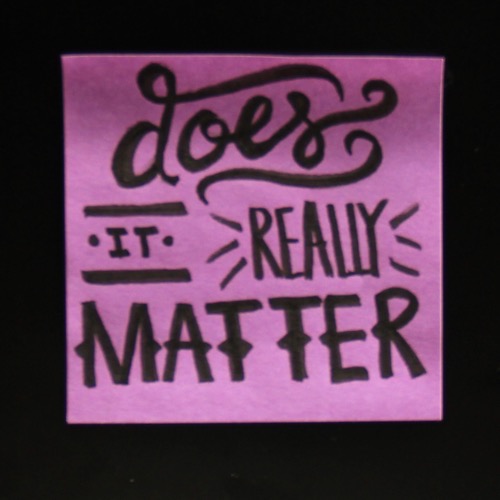 does
•IT• REALLY
MATTER